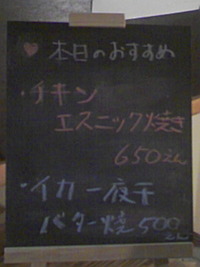 ♥ 本日のおすすめ
・チキン
エスニック焼き
650えん
・イカ一夜干
バター焼500
えん